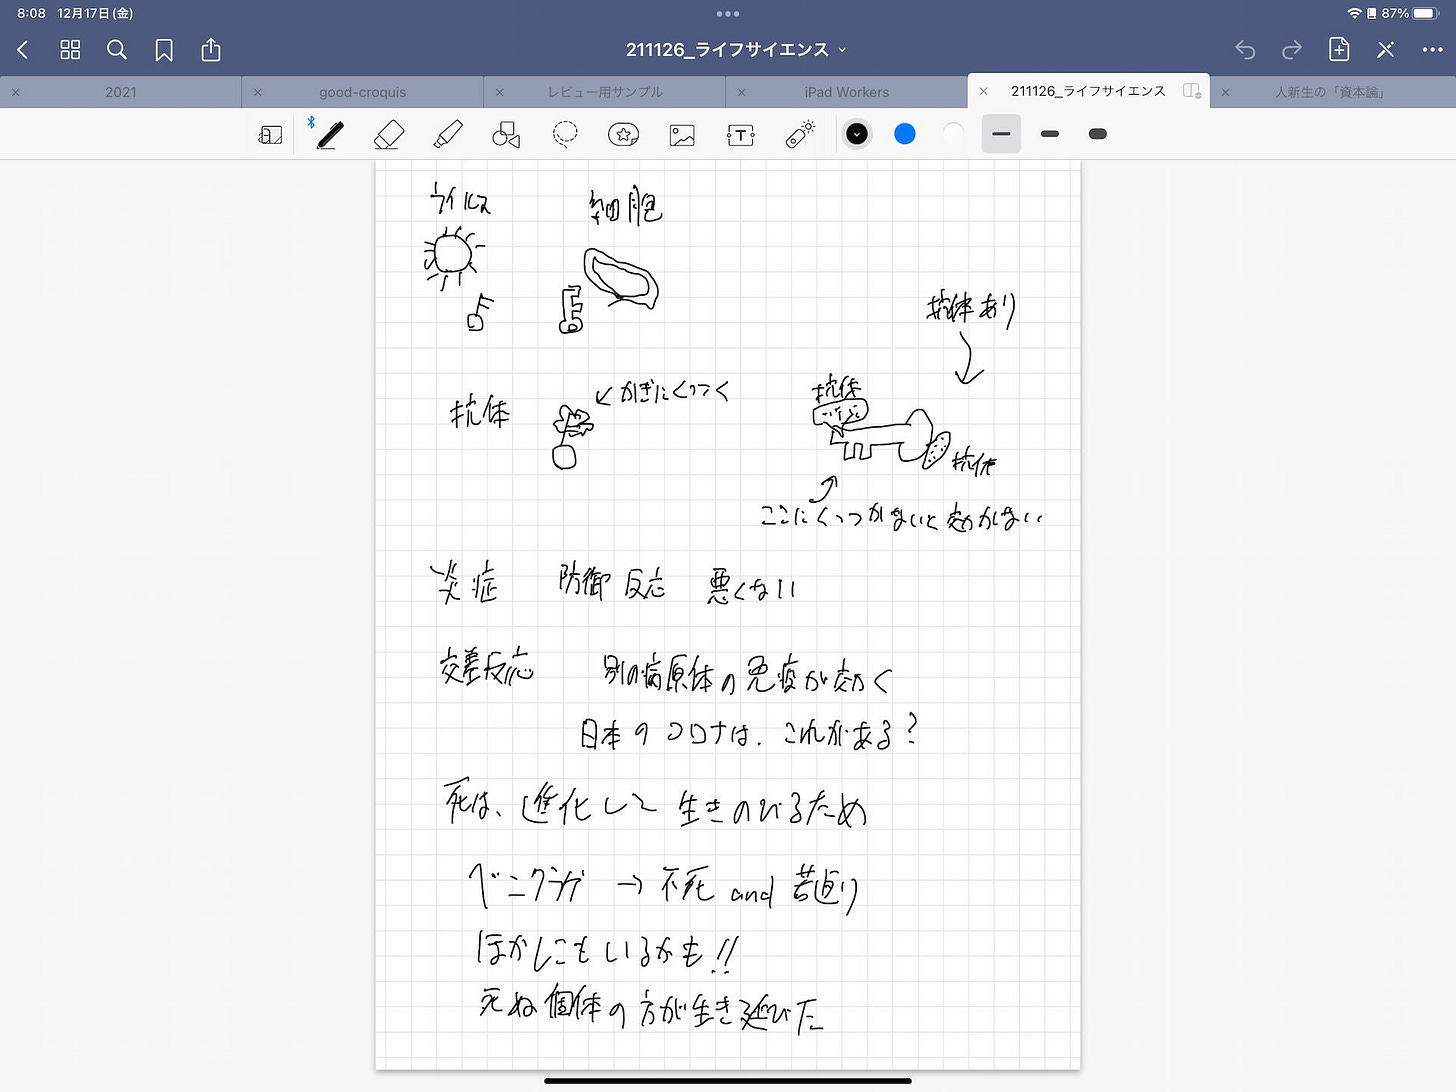 8:08 12月17日(金)
87%
211126_ライフサイエンス
2021
good-croquis
レビュー用サンプル
iPad Workers
211126_ライフサイエンス
人新生の「資本論」
T
ウイルス 細胞
抗体あり
抗体 ← かぎにくっつく
抗体
抗体
ここにくっつかないと効かない
炎症 防御反応 悪くない
交差反応 別の病原体の免疫が効く
日本のコロナは、これがある?
死は、進化して生きのびるため
ベニクラゲ → 不死 and 若返り
ほかにもいるかも!!
死ぬ個体の方が生き延びた